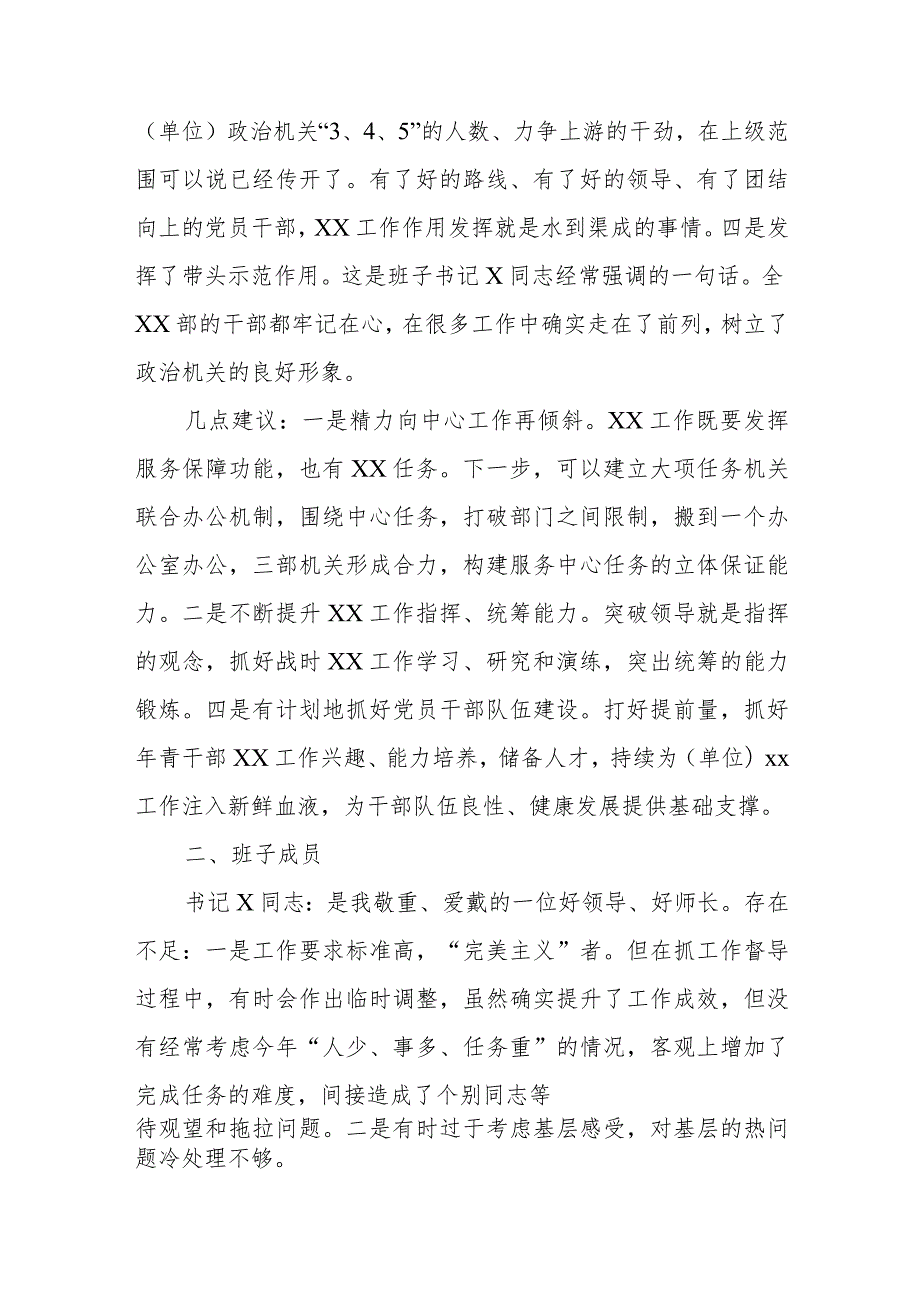 （单位）政治机关“3、4、5”的人数、力争上游的干劲，在上级范
围可以说已经传开了。有了好的路线、有了好的领导、有了团结
向上的党员干部，XX工作作用发挥就是水到渠成的事情。四是发
挥了带头示范作用。这是班子书记X同志经常强调的一句话。全
XX部的干部都牢记在心，在很多工作中确实走在了前列，树立了
政治机关的良好形象。
几点建议：一是精力向中心工作再倾斜。XX工作既要发挥
服务保障功能，也有XX任务。下一步，可以建立大项任务机关
联合办公机制，围绕中心任务，打破部门之间限制，搬到一个办
公室办公，三部机关形成合力，构建服务中心任务的立体保证能
力。二是不断提升XX工作指挥、统筹能力。突破领导就是指挥
的观念，抓好战时XX工作学习、研究和演练，突出统筹的能力
锻炼。四是有计划地抓好党员干部队伍建设。打好提前量，抓好
年青干部XX工作兴趣、能力培养，储备人才，持续为（单位）xx
工作注入新鲜血液，为干部队伍良性、健康发展提供基础支撑。
二、班子成员
书记X同志：是我敬重、爱戴的一位好领导、好师长。存在
不足：一是工作要求标准高，“完美主义”者。但在抓工作督导
过程中，有时会作出临时调整，虽然确实提升了工作成效，但没
有经常考虑今年“人少、事多、任务重”的情况，客观上增加了
完成任务的难度，间接造成了个别同志等
待观望和拖拉问题。二是有时过于考虑基层感受，对基层的热问
题冷处理不够。